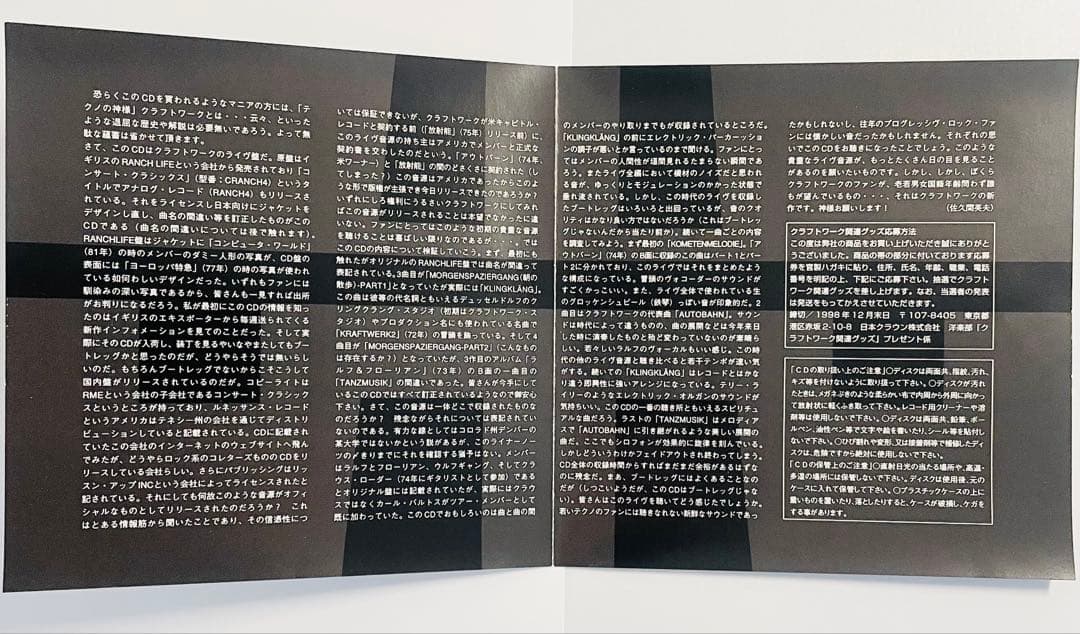 恐らくこのCDを買われるようなマニアの方には、「テ
クノの神様」クラフトワークとは・・・云々、といった
ような退屈な歴史や解説は必要無いであろう。よって無
駄な蘊蓄は省かせて頂きます。
さて、このCDはクラフトワークのライヴ盤だ。原盤はイ
ギリスのRANCH LIFEという会社から発売されており「コ
ンサート・クラシックス」(型番:CRANCH4)というタ
イトルでアナログ・レコード(RANCH4)もリリースさ
れている。それをライセンスし日本向けにジャケットを
デザインし直し、曲名の間違い等を訂正したものがこの
CDである(曲名の間違いについては後で触れます)。
RANCHLIFE盤はジャケットに「コンピュータ・ワールド」
(81年)の時のメンバーのダミー人形の写真が、CD盤の
表面には「ヨーロッパ特急」(77年)の時の写真が使われ
ている如何わしいデザインだった。いずれもファンには
馴染みの深い写真であるから、皆さんも一見すれば出所
がお判りになるだろう。私が最初にこのCDの情報を知っ
たのはイギリスのエキスポーターから毎週送られてくる
新作インフォメーションを見てのことだった。そして実
際にそのCDが入荷し、装丁を見るやいなやまたしてもブー
トレッグかと思ったのだが、どうやらそうでは無いらし
いのだ。もちろんブートレッグでないからこそこうして
国内盤がリリースされているのだが。コピーライトは
RMEという会社の子会社であるコンサート・クラシックス
というところが持っており、ルネッサンス・レコード
というアメリカはテネシー州の会社を通じてディストリ
ビューションしていると記載されている。CDに記載され
ていたこの会社のインターネットのウェブサイトへ飛ん
でみたが、どうやらロック系のコレターズもののCDをリ
リースしている会社らしい。さらにパブリッシングはリッ
スン・アップINCという会社によってライセンスされたと
記されている。それにしても何故このような音源がオフィ
シャルなものとしてリリースされたのだろうか? これ
はとある情報筋から聞いたことであり、その信憑性につ
いては保証できないが、クラフトワークが米キャピトル・
レコードと契約する前(「放射能」(75年)リリース前)に、
このライヴ音源の持ち主はアメリカでメンバーと正式な
契約書を交わしたのだという。「アウトバーン」(74年、
米ワーナー)と「放射能」の間のどさくさに契約された(し
てしまった?)この音源はアメリカであったからこのよ
うな形で版権が主張でき今日リリースできたのであろうか?
いずれにしろ権利にうるさいクラフトワークにしてみれ
ばこの音源がリリースされることは本望でなかったに違
いない。ファンにとってはこのような初期の貴重な音源
を聴けることは喜ばしい限りなのであるが・・・。では
このCDの内容について検証していこう。まず、最初にも
触れたがオリジナルのRANCHLIFE盤では曲名が間違って
表記されている。3曲目が「MORGENSPAZIERGANG(朝の
散歩)-PART1」となっていたが実際には「KLINGKLANG」。
この曲は彼等の代名詞ともいえるデュッセルドルフのク
リングクラング・スタジオ(初期はクラフトワーク・ス
タジオ)やプロダクション名にも使われている名曲で
「KRAFTWERK2」(72年)の冒頭を飾っている。そして4
曲目が「MORGENSPAZIERGANG-PART2」(こんなもの
は存在するか?)となっていたが、3作目のアルバム「ラ
ルフ&フローリアン」(73年)のB面の一曲目の
「TANZMUSIK」の間違いであった。皆さんが今手にして
いるこのCDではすべて訂正されているようなので御安心
下さい。さて、この音源は一体どこで収録されたものな
のだろうか? 残念ながらそれについては表記されてい
ないのである。有力な線としてはコロラド州デンバーの
某大学ではないかという説があるが、このライナーノー
ツの〆きりまでにそれを確認する猶予はない。メンバー
はラルフとフローリアン、ウルフギャング、そしてクラ
ウス・ローダー(74年にギタリストとして参加)である
とオリジナル盤には記載されていたが、実際にはクラウ
スではなくカール・バルトスがツアー・メンバーとして
既に加わっていた。このCDでおもしろいのは曲と曲の間
のメンバーのやり取りまでもが収録されているところだ。
「KLINGKLÄNG」の前にエレクトリック・パーカッション
の調子が悪いとか言っているのまで聞ける。ファンにとっ
てはメンバーの人間性が垣間見れるたまらない瞬間であ
ろう。またライヴ全編において機材のノイズだと思われ
る音が、ゆっくりとモジュレーションのかかった状態で
垂れ流されている。しかし、この時代のライヴを収録し
たブートレッグはいろいろと出回っているが、音のクオ
リティはかなり良い方ではないだろうか(これはブートレッ
グじゃないんだから当たり前か)。続いて一曲ごとの内容
を調査してみよう。まず最初の「KOMETENMELODIE」。「ア
ウトバーン」(74年)のB面に収録のこの曲はパート1とパー
ト2に分かれており、このライヴではそれをまとめたよう
な構成になっている。冒頭のヴォコーダーのサウンドが
すごくかっこいい。また、ライヴ全体で使われている生
のグロッケンシュピール(鉄琴)っぽい音が印象的だ。2
曲目はクラフトワークの代表曲「AUTOBAHN」。サウン
ドは時代によって違うものの、曲の展開などは今年来日
した時に演奏したものと殆ど変わっていないのが素晴ら
しい。若々しいラルフのヴォーカルもいい感じ。この時
代の他のライヴ音源と聴き比べると若干テンポが速い気
がする。続いての「KLINGKLANG」はレコードとはかな
り違う即興性に強いアレンジになっている。テリー・ラ
イリーのようなエレクトリック・オルガンのサウンドが
気持ちいい。このCDの一番の聴き所ともいえるスピリチュ
アルな曲だろう。ラストの「TANZMUSIK」はメロディアス
で「AUTOBAHN」に引き継がれるような美しい展開の
曲だ。ここでもシロフォンが効果的に旋律を刻んでいる。
しかしどういうわけかフェイドアウトされ終わってしまう。
CD全体の収録時間からすればまだまだ余裕があるはずな
のに残念だ。まあ、ブートレッグにはよくあることなの
だが(しつこいようだが、このCDはブートレッグじゃな
い)。皆さんはこのライヴを聴いてどう感じたでしょうか。
若いテクノのファンには聴きなれない新鮮なサウンドであっ
たかもしれないし、往年のプログレッシヴ・ロック・ファ
ンには懐かしい音だったかもしれません。それぞれの思
いでこのCDをお聴きになったことでしょう。このような
貴重なライヴ音源が、もっとたくさん日の目を見ること
があるのを願いたいものです。しかし、しかし、ぼくら
クラフトワークのファンが、老若男女国籍年齢問わず誰
もが望んでいるもの・・・、それはクラフトワークの新
作です。神様お願いします! (佐久間英夫)
クラフトワーク関連グッズ応募方法
この度は弊社の商品をお買い上げいただき誠にありがと
うございました。商品の帯の部分に付いております応募
券を官製ハガキに貼り、住所、氏名、年齢、職業、電話
番号を明記の上、下記にご応募下さい。抽選でクラフト
ワーク関連グッズを差し上げます。なお、当選者の発表
は発送をもってかえさせていただきます。
締切/1998年12月末日 〒107-8405 東京都
港区赤坂2-10-8 日本クラウン株式会社 洋楽部「ク
ラフトワーク関連グッズ」プレゼント係
「CDの取り扱い上のご注意」○ディスクは両面共、指紋、汚れ、
キズ等を付けないように取り扱って下さい。○ディスクが汚れ
たときは、メガネふきのような柔らかい布で内周から外周に向かっ
て放射状に軽くふき取って下さい。レコード用クリーナーや溶
剤等は使用しないで下さい。○ディスクは両面共、鉛筆、ボー
ルペン、油性ペン等で文字や絵を書いたり、シール等を貼付し
ないで下さい。○ひび割れや変形、又は接着剤等で補修したディ
スクは、危険ですから絶対に使用しないで下さい。
「CDの保管上のご注意」○直射日光の当たる場所や、高温・
多湿の場所には保管しないで下さい。ディスクは使用後、元の
ケースに入れて保管して下さい。○プラスチックケースの上に
重いものを置いたり、落としたりすると、ケースが破損し、ケガを
する事があります。